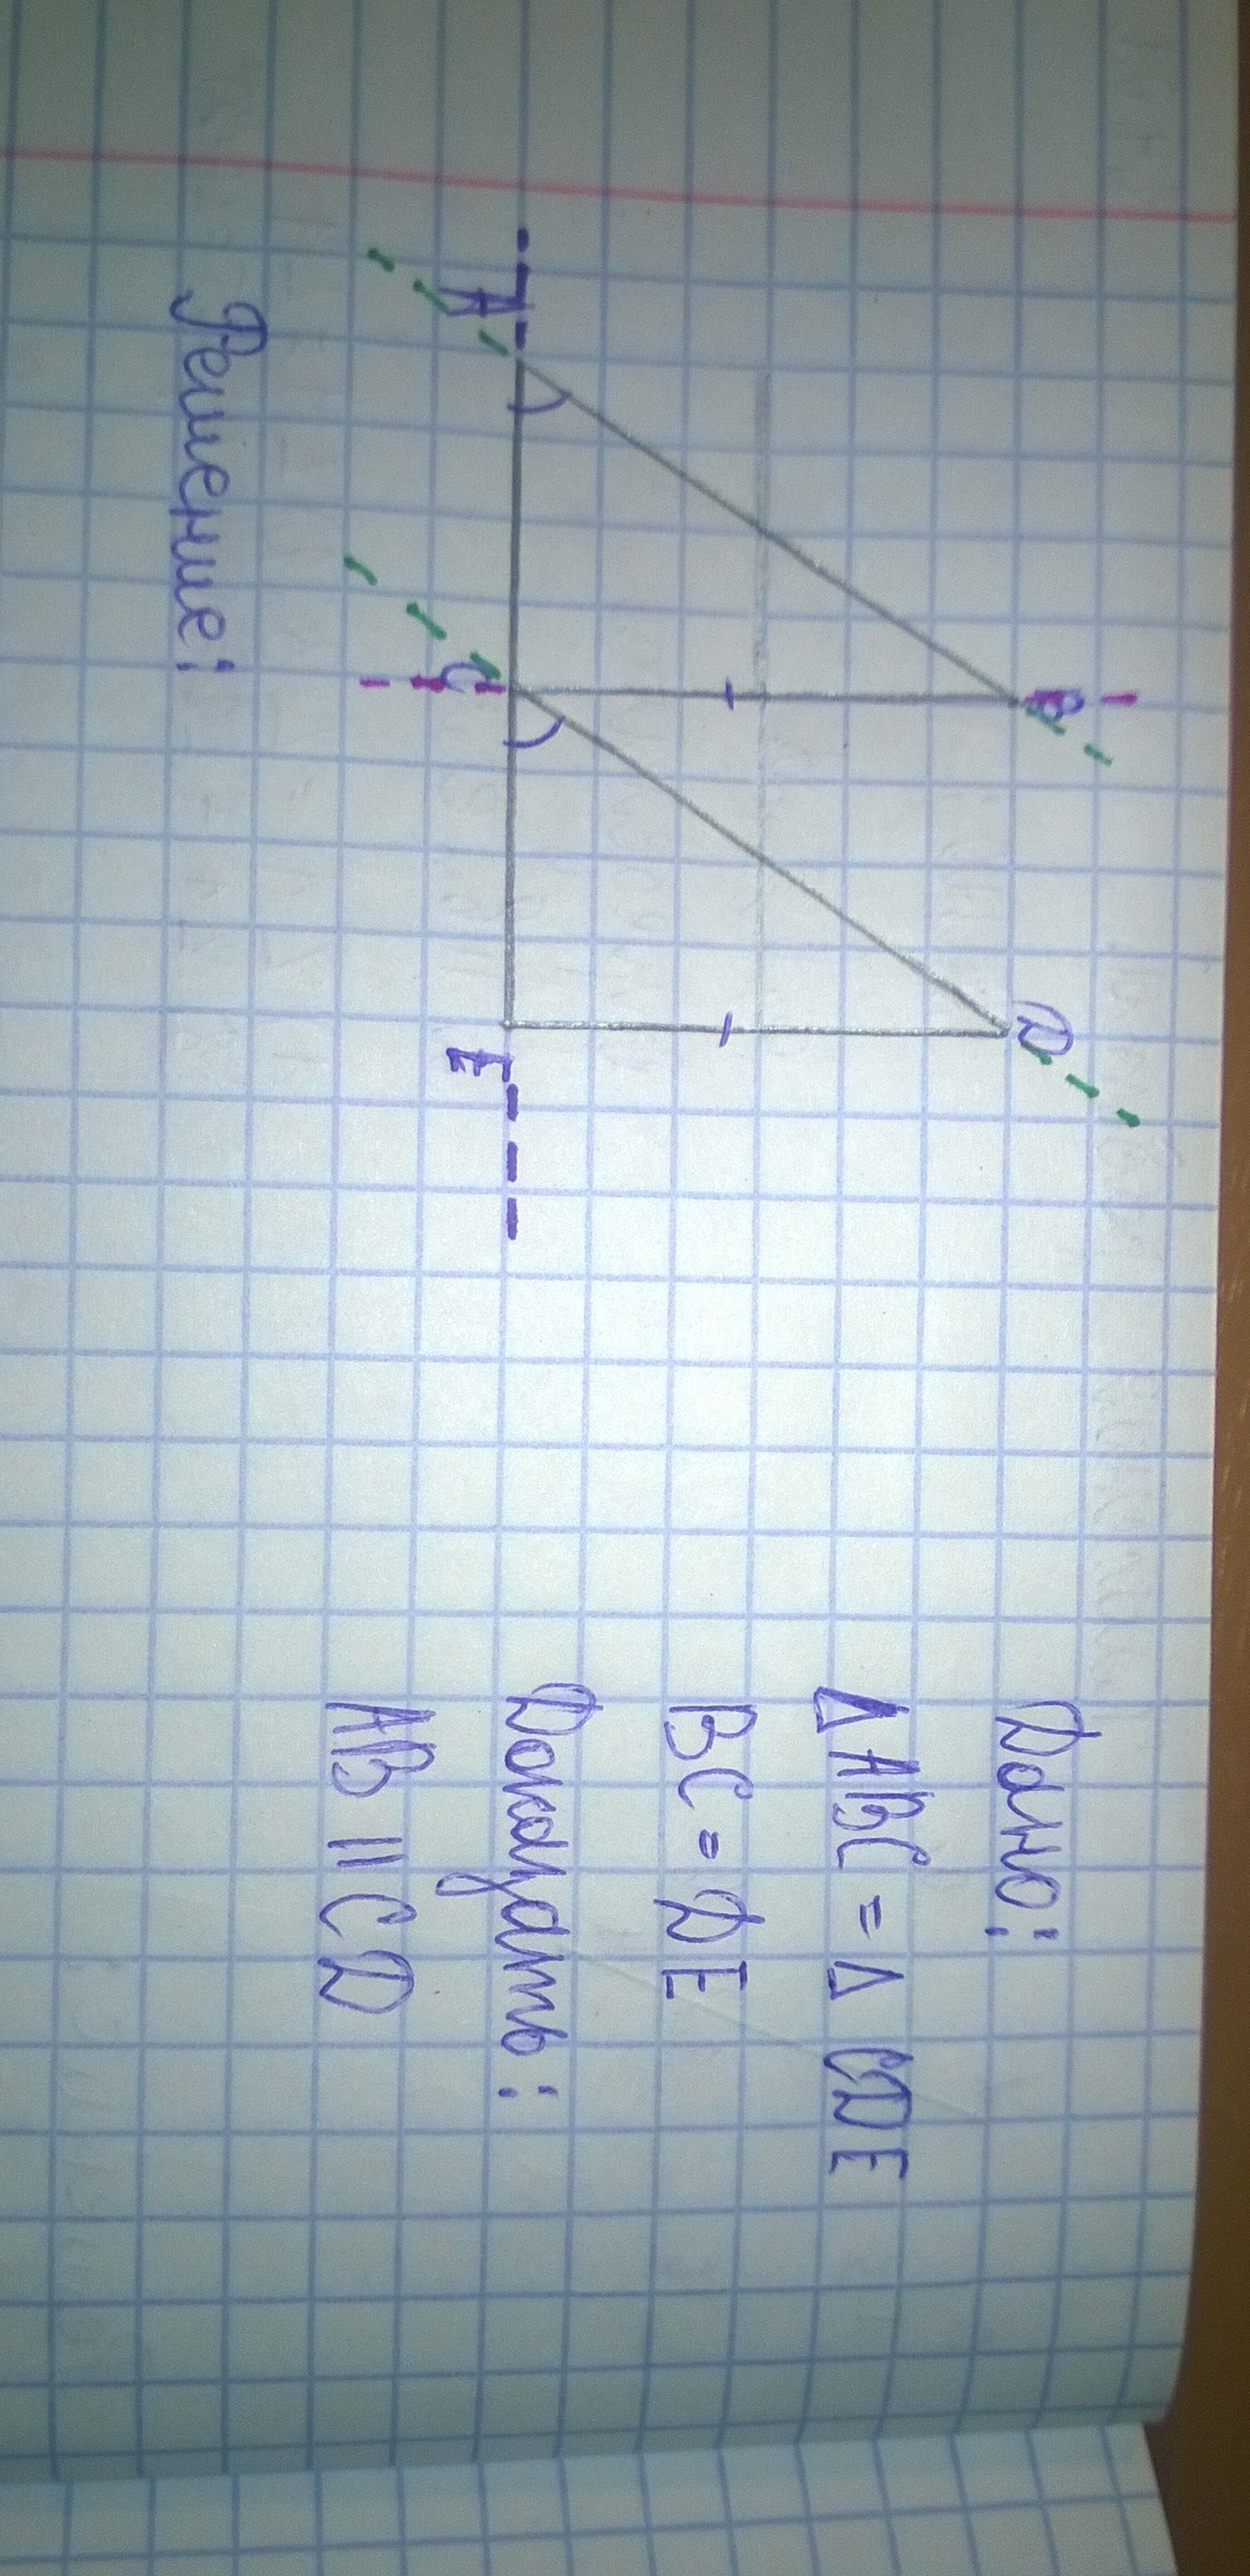 Дано:
Δ ABC = Δ CDE
BC = DE
Доказать:
AB || CD
B
D
A
C
E
Решение: